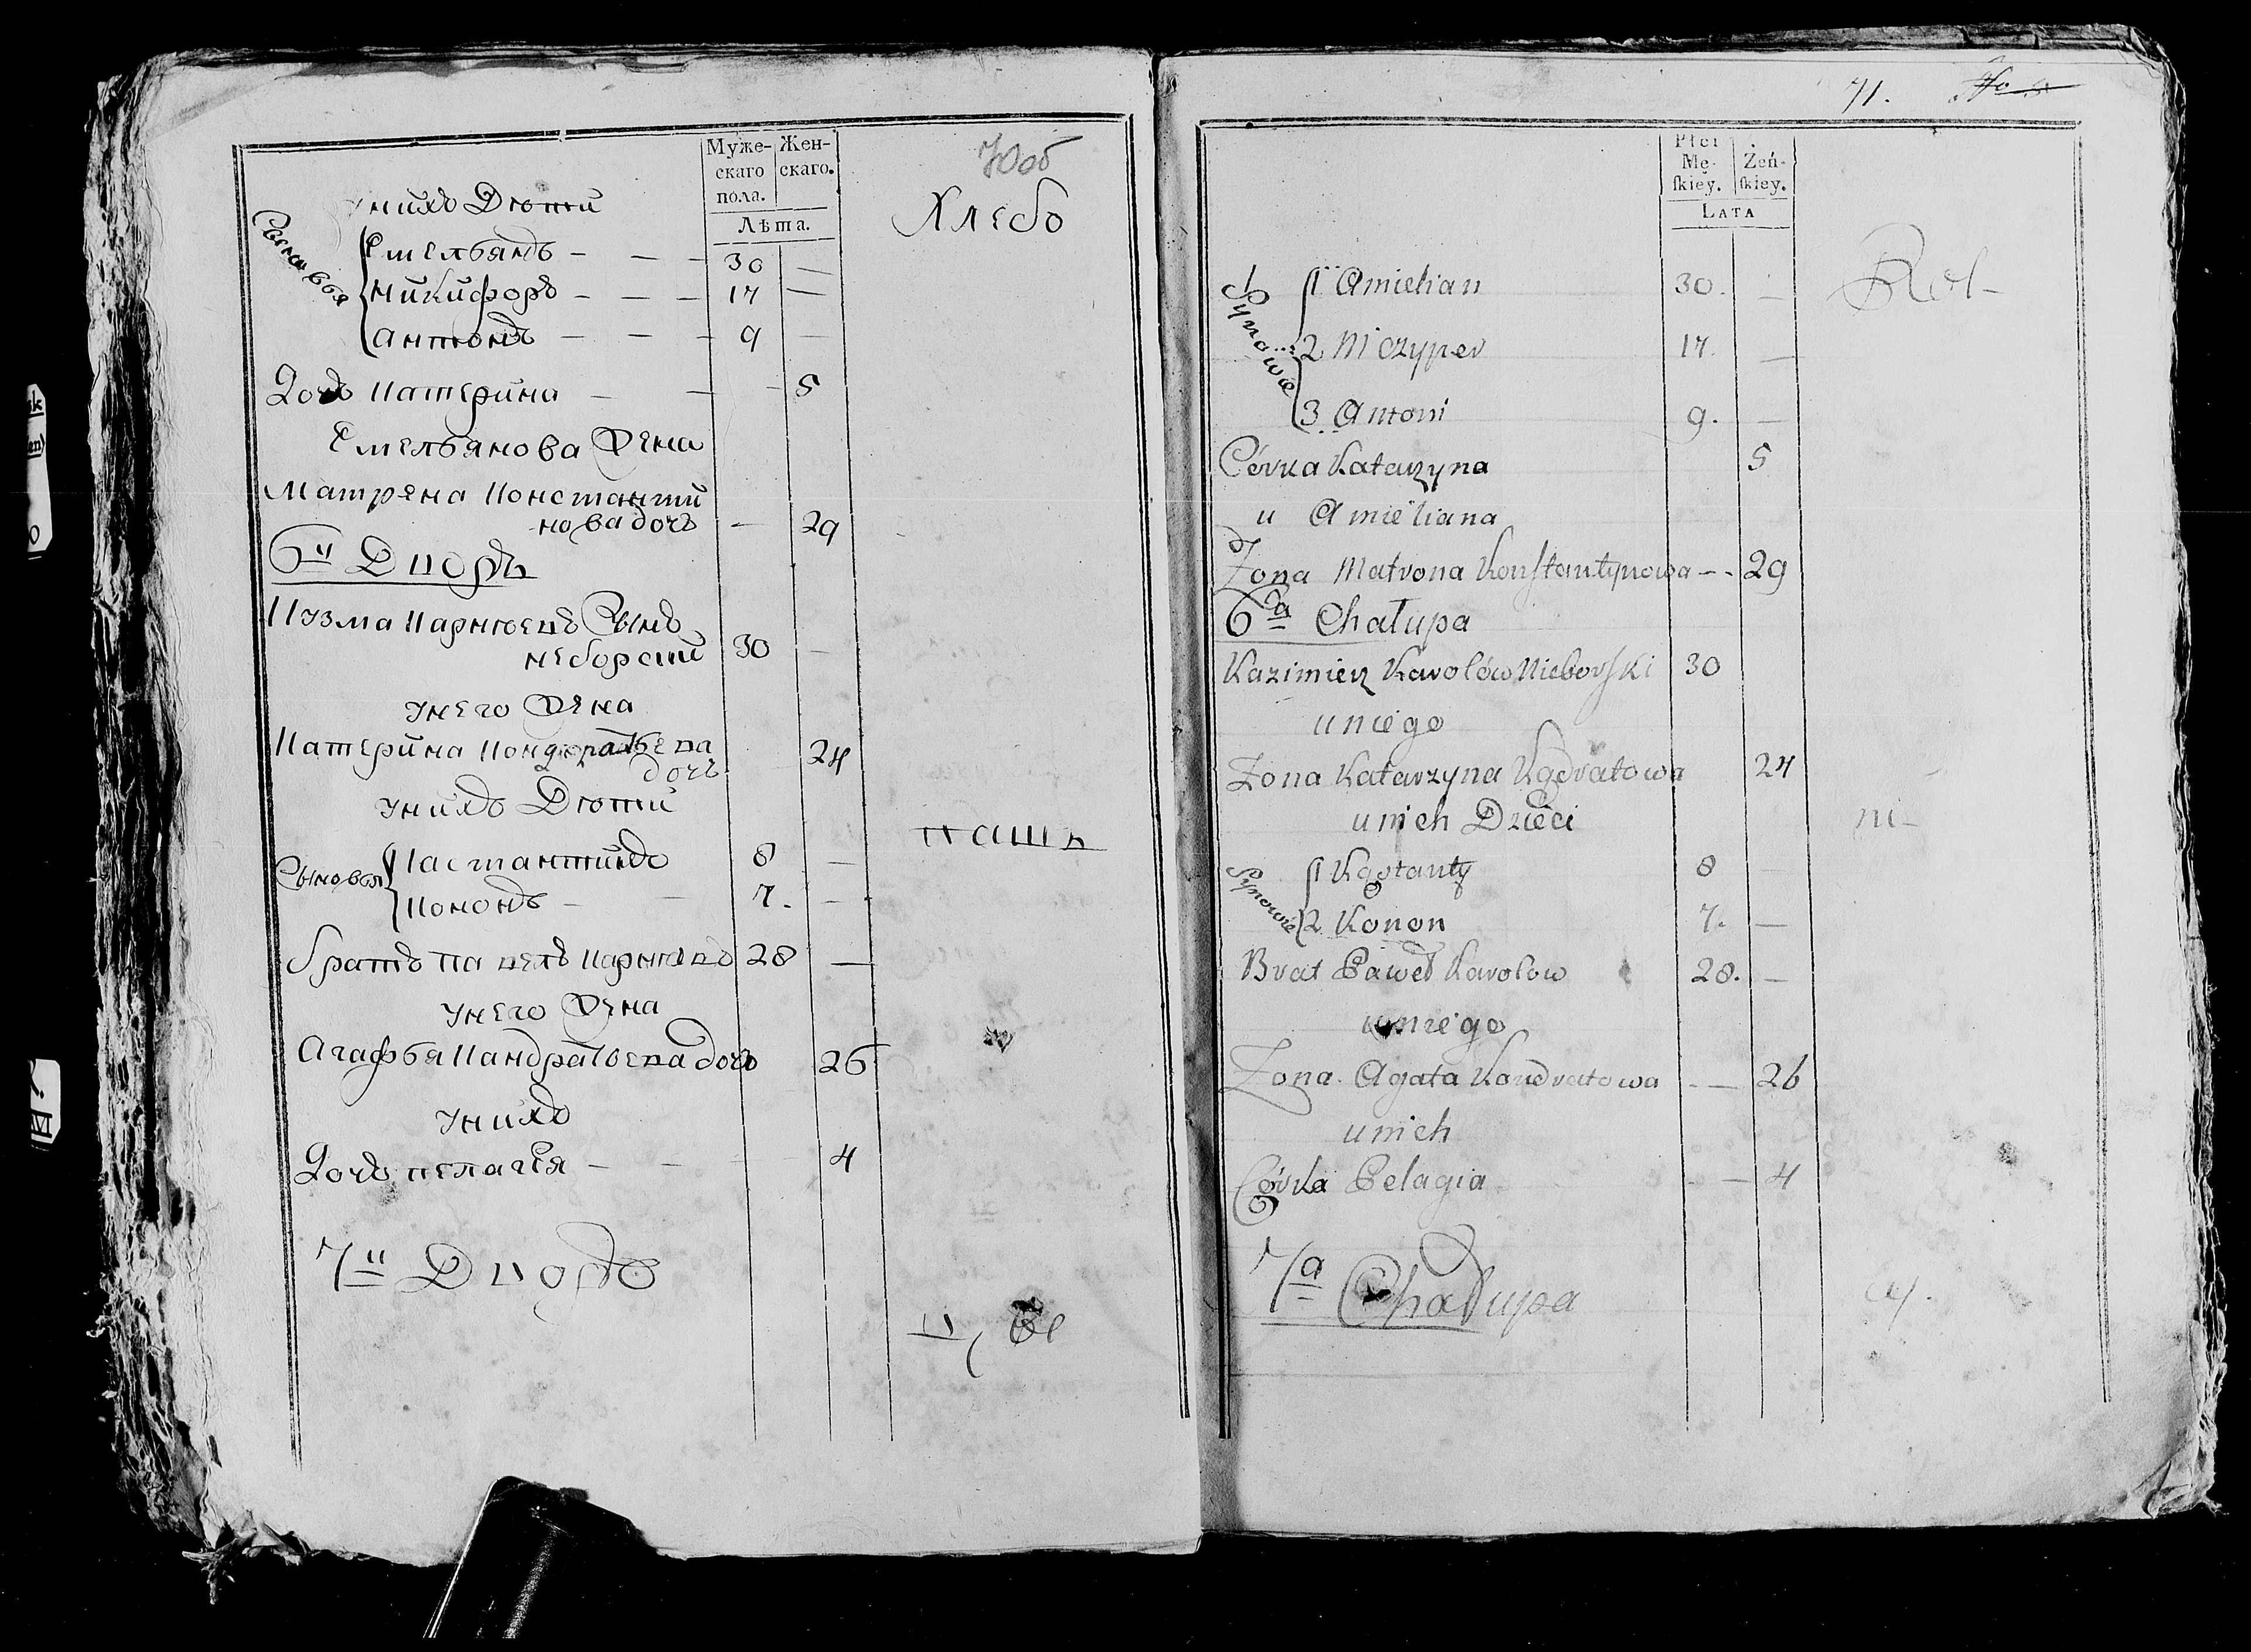 70об
Муже-
скаго
пола.
Жен-
скаго.
Лѣта.
Хлебо
унихъ Дѣти
Сыновья
Емельянъ - — — 30 —
Никифоръ - — — 17 —
Антонъ — — — 9 —
Дочь Катерина — — 5
Емельянова Жена
Матрена Константи
нова дочь — 29
6й Дворъ
Кузма Сынъ
Неборский 30 —
унего Жена
Катерина Кондратьева
дочь 24
унихъ Дѣти
паш
Сыновья
Кастантинъ 8 —
Кононъ — 7. —
братъ Павелъ 28 —
унего Жена
Агафья Кандратьева дочь 26
унихъ
Дочь Пелагея — — 4
7й Дворъ
71.
Płci
Mę-
skiey.
Żeń-
skiey.
LATA
Rol-
Synowie
1 Amielian 30. —
2 Niczyper 17. —
3 Antoni 9. —
Córka Katarzyna 5
u Amieliana
Żona Matrona Konstantynowa — 29
6ta Chałupa
Kazimierz Karolów Nieborski 30
u niego
Żona Katarzyna Kądratowa 24
u nich Dzieci
ni-
Synowie
1 Kąstanty 8 —
2 Konon 7. —
Brat Paweł Karolow 28. —
u niego
Żona Agata Kondratowa — 26
u nich
Córka Pelagia — 4
7a Chałupa
cy.